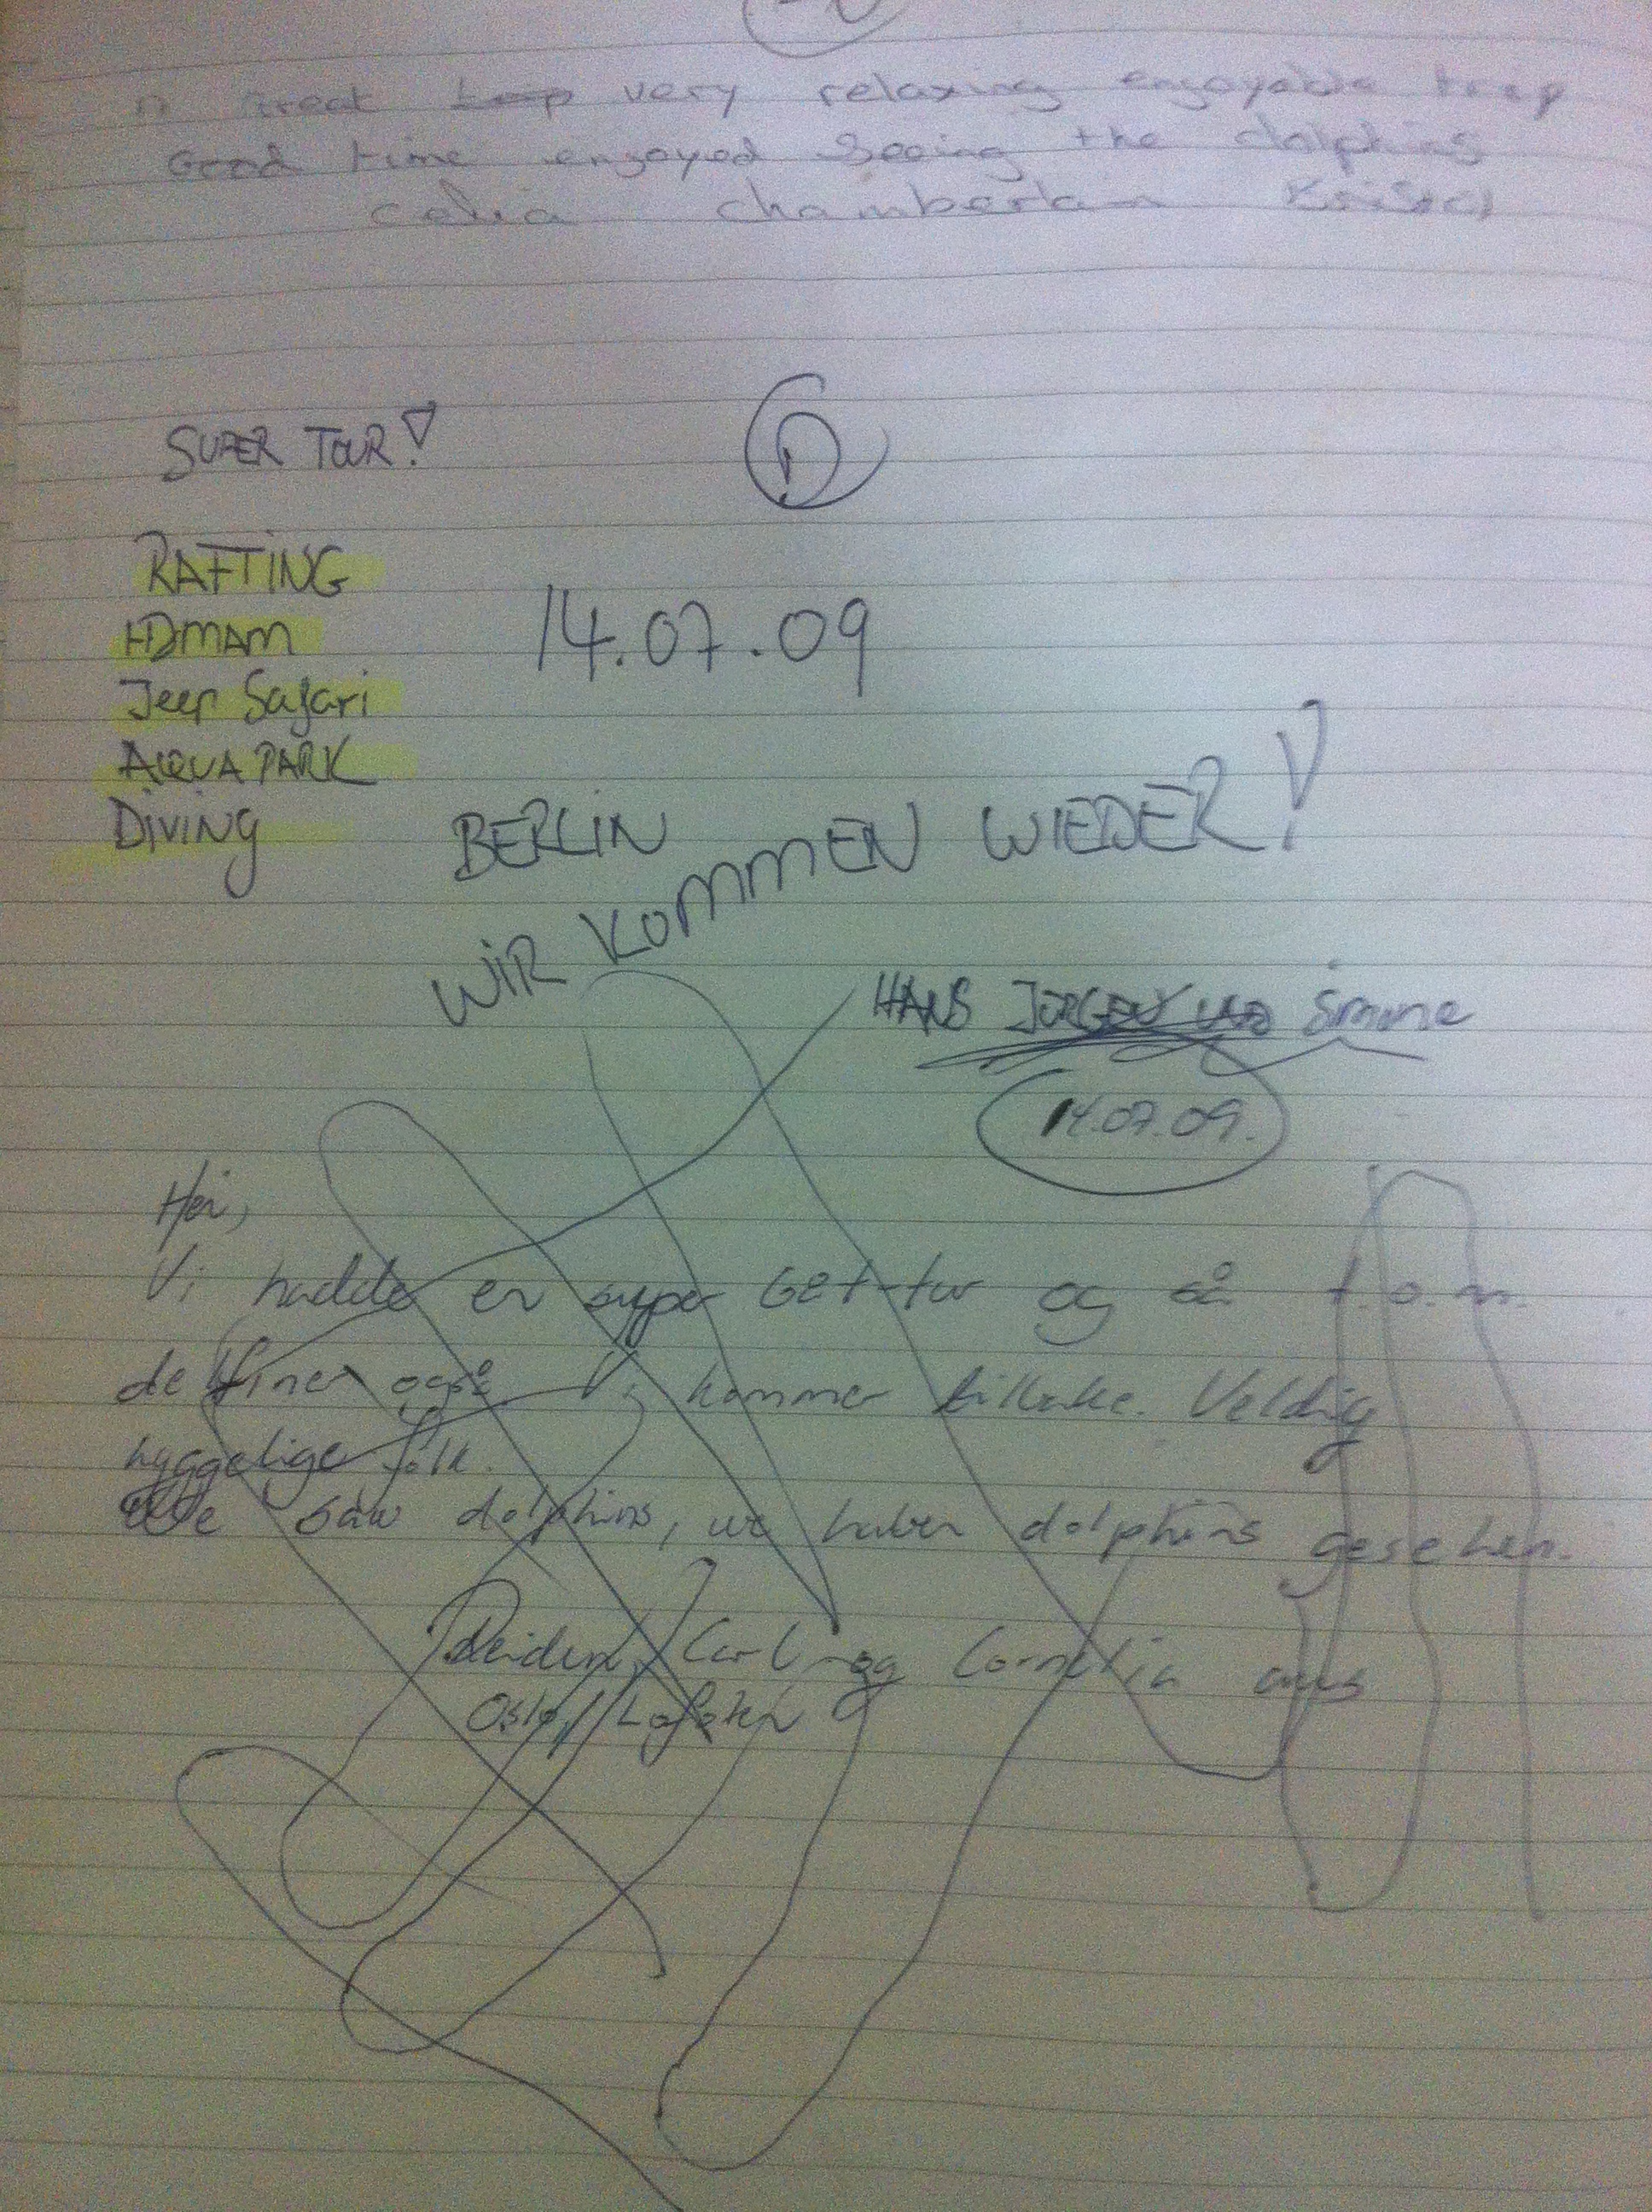 A Great trip very relaxing enjoyable trip
Good time enjoyed seeing the dolphins
celia chamberlain Bristol
SUPER TOUR!
D
RAFTING
HAMAM
14.07.09
Jeep Safari
AQUAPARK
DIVING
BERLIN
WIR KOMMEN WIEDER!
HANS JÜRGEN UND
14.07.09.
Hei,
Vi hadde en super båt-tur og så t.o.m.
delfiner også Vi kommer tilbake. Veldig
hyggelige folk.
We saw dolphins, we haben dolphins gesehen.
Carl og Cornelia aus
Oslo // Lofoten